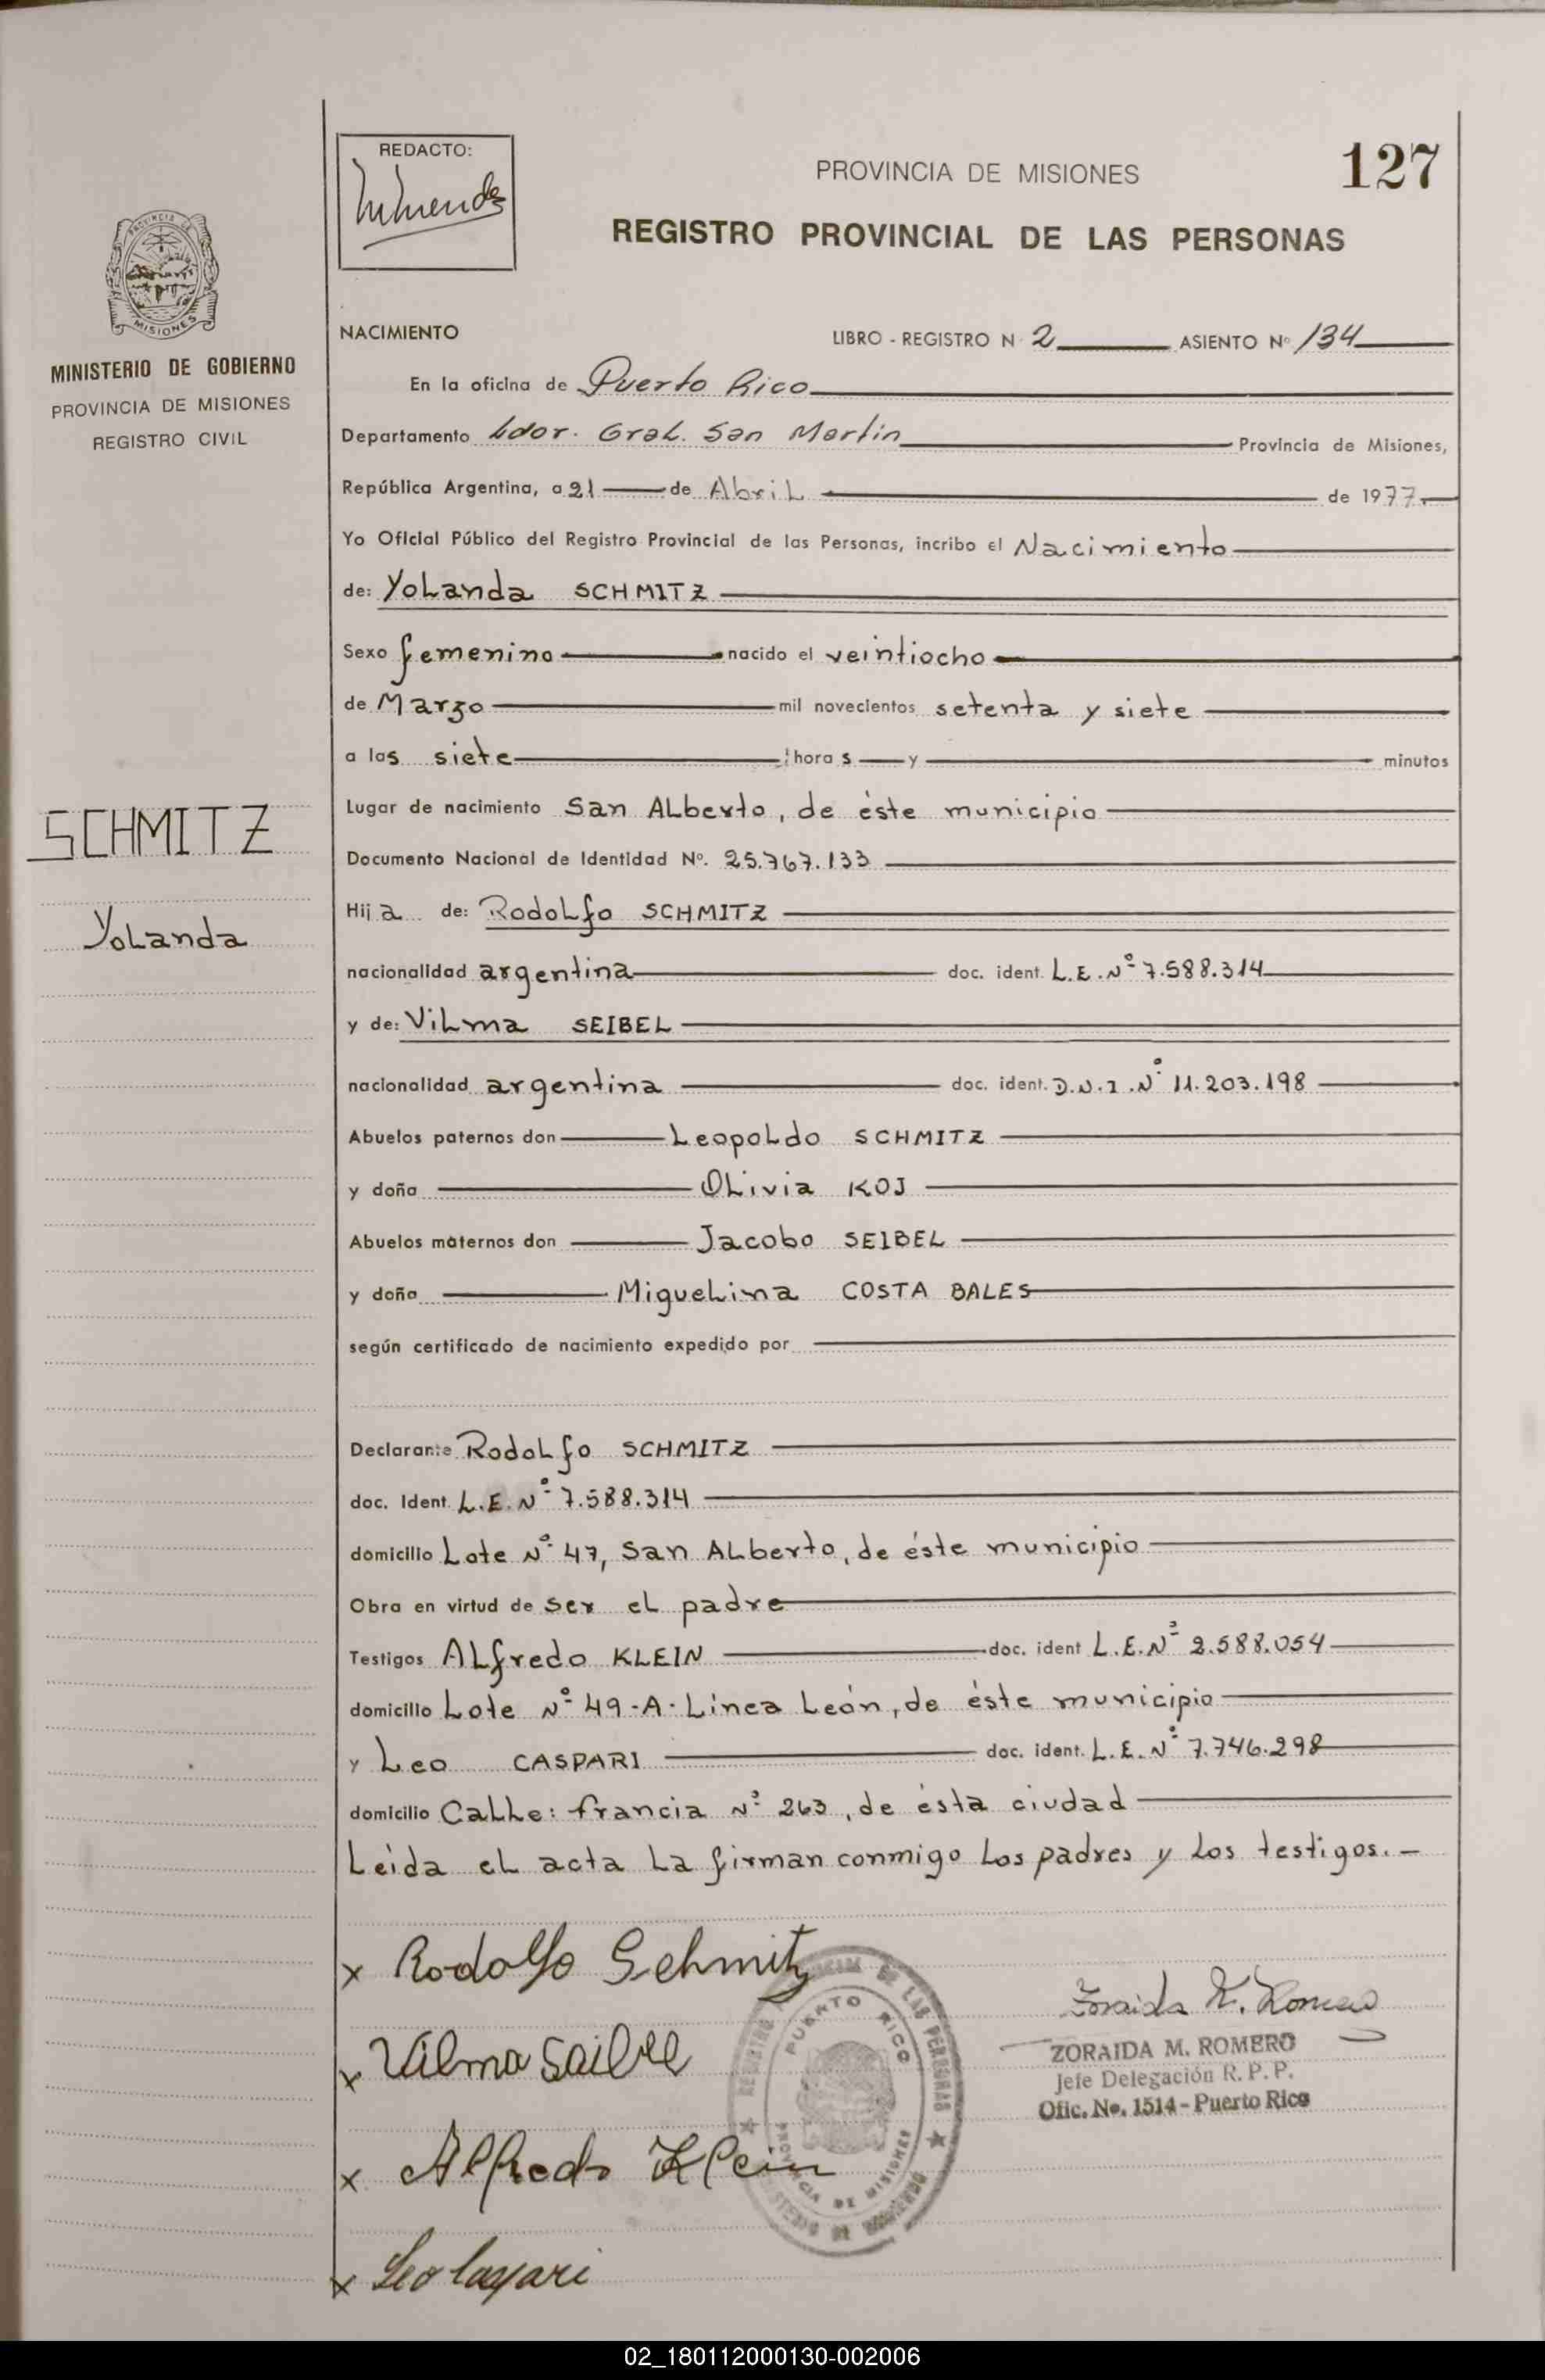 REDACTO:
PROVINCIA DE MISIONES
127
REGISTRO PROVINCIAL DE LAS PERSONAS
MISIONES
MINISTERIO DE GOBIERNO
PROVINCIA DE MISIONES
REGISTRO CIVIL
SCHMITZ
Yolanda
NACIMIENTO LIBRO - REGISTRO N 2 ASIENTO Nº 134
En la oficina de Puerto Rico
Departamento Ldor. Gral. San Martin Provincia de Misiones,
República Argentina, a 21 de Abril de 1977.
Yo Oficial Público del Registro Provincial de las Personas, incribo el Nacimiento
de: Yolanda SCHMITZ
Sexo femenino nacido el veintiocho
de Marzo mil novecientos setenta y siete
a las siete hora s y minutos
Lugar de nacimiento San Alberto, de éste municipio
Documento Nacional de Identidad Nº. 25.767.133
Hij a de: Rodolfo SCHMITZ
nacionalidad argentina doc. ident. L.E. Nº 7.588.314
y de: Vilma SEIBEL
nacionalidad argentina doc. ident. D.N.I. Nº 11.203.198
Abuelos paternos don Leopoldo SCHMITZ
y doña Olivia KOJ
Abuelos maternos don Jacobo SEIBEL
y doña Miguelina COSTA BALES
según certificado de nacimiento expedido por
Declarante Rodolfo SCHMITZ
doc. Ident. L.E. Nº 7.588.314
domicilio Lote Nº 47, San Alberto, de éste municipio
Obra en virtud de ser el padre
Testigos Alfredo KLEIN doc. ident L.E. Nº 2.588.054
domicilio Lote Nº 49-A- Línea León, de éste municipio
y Leo CASPARI doc. ident. L.E. Nº 7.746.298
domicilio Calle: Francia Nº 263, de ésta ciudad
Leída el acta la firman conmigo los padres y los testigos.-
x Rodolfo Schmitz
x Vilma Saibel
x Alfredo Klein
x Leo Caspari
PUERTO RICO
PROVINCIA DE MISIONES
Zoraida M. Romero
ZORAIDA M. ROMERO
Jefe Delegación R. P. P.
Ofic. No. 1514 - Puerto Rico
02_180112000130-002006